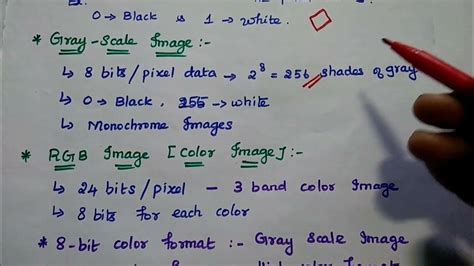 0 → Black is 1 → white.
* Gray-Scale Image :-
↳ 8 bits/pixel data → 2⁸ = 256 shades of gray
↳ 0 → Black, 255 → white
↳ Monochrome Images
* RGB Image [Color Image] :-
↳ 24 bits/pixel - 3 band color Image
↳ 8 bits for each color
* 8-bit color format :- Gray Scale Image